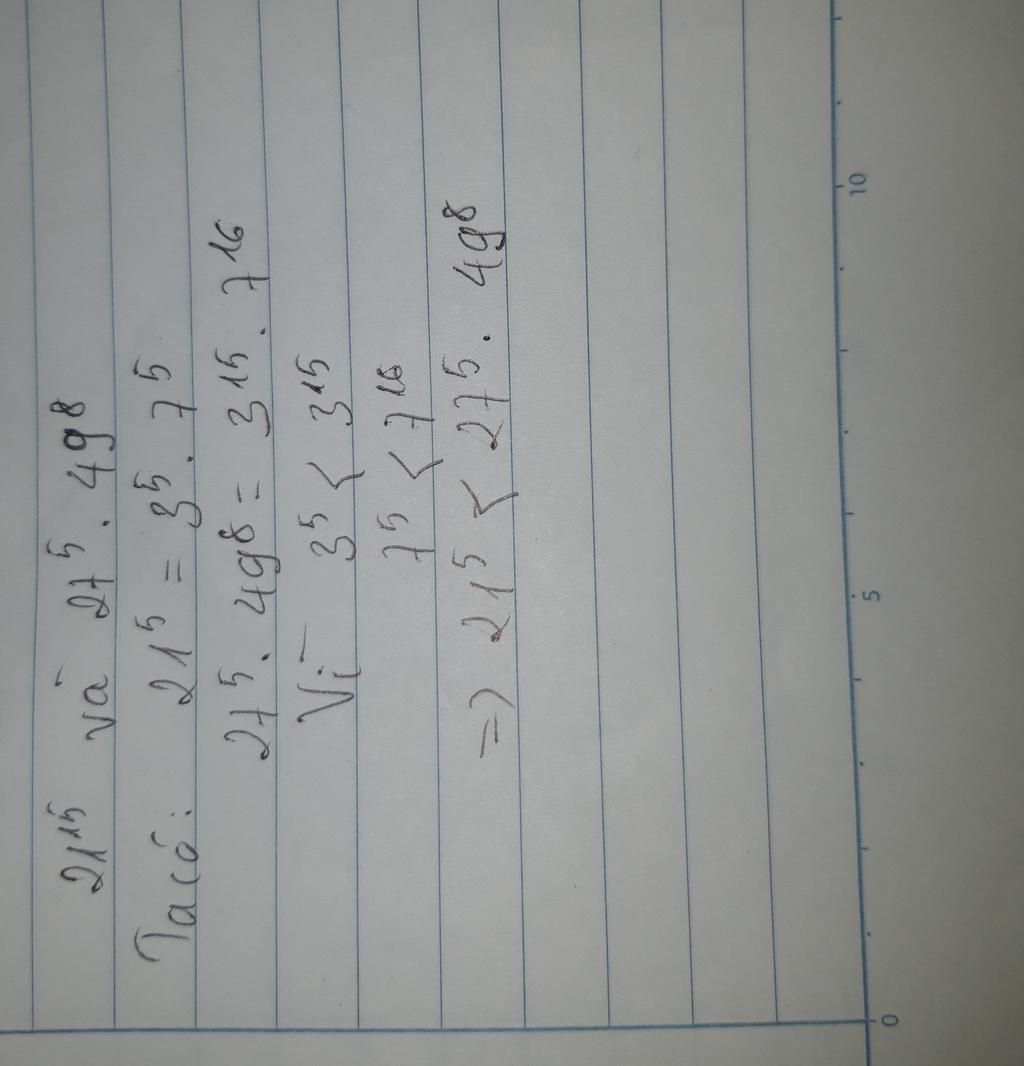 21¹⁵ và 27⁵ . 49⁸
Ta có: 21⁵ = 3⁵ . 7⁵
27⁵ . 49⁸ = 3¹⁵ . 7¹⁶
Vì 3⁵ < 3¹⁵
7⁵ < 7¹⁶
=> 21⁵ < 27⁵ . 49⁸
0 5 10